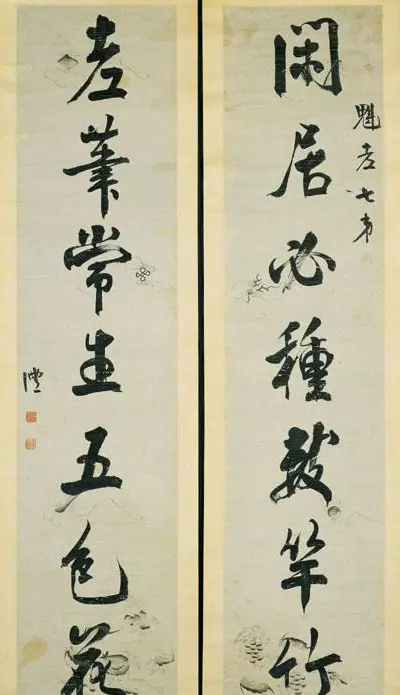 閑居必種數竿竹
魁老七弟
老筆常生五色花